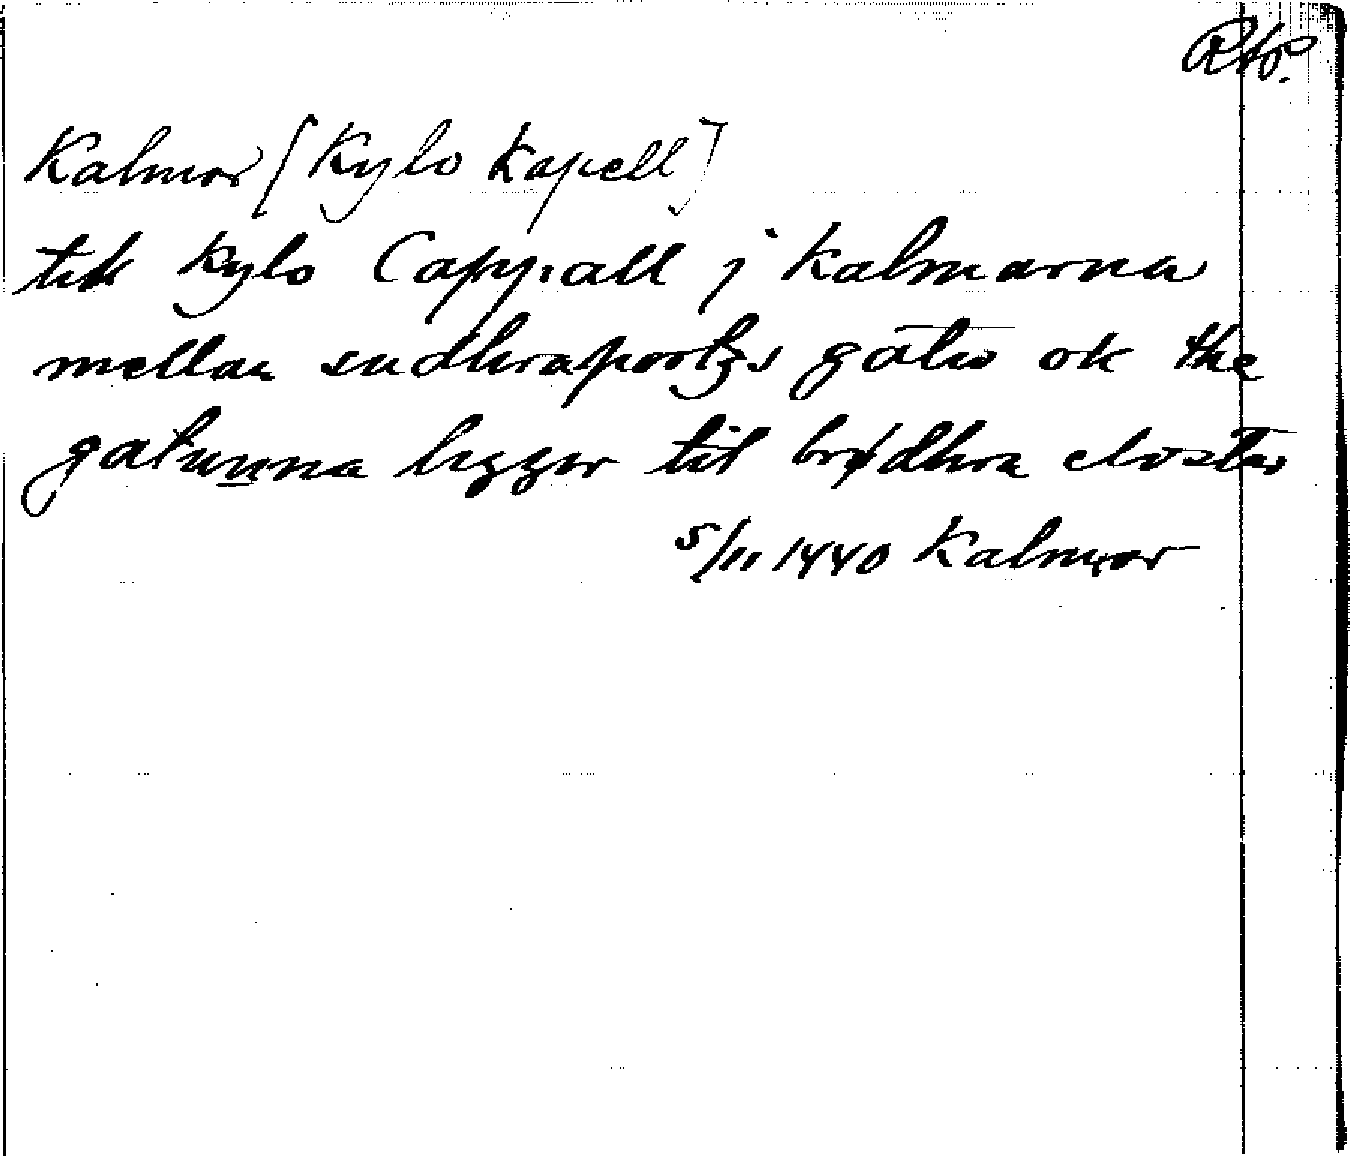 Rtb.
Kalmar [Kylo Kapell]
till Kylo Cappall j Kalmarna
mellan sudhraportzs gatw ok the
gatwnna ligger til brødhra closter
5/11 1440 Kalmar